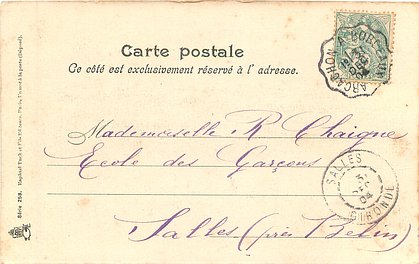 Carte postale
Ce côté est exclusivement réservé à l'adresse.
Mademoiselle R Chaigne
Ecole des Garçons
Salles (près Belin)
SALLES
GIRONDE
04
ARCACHON
Série 258. Raphael Tuck et Fils